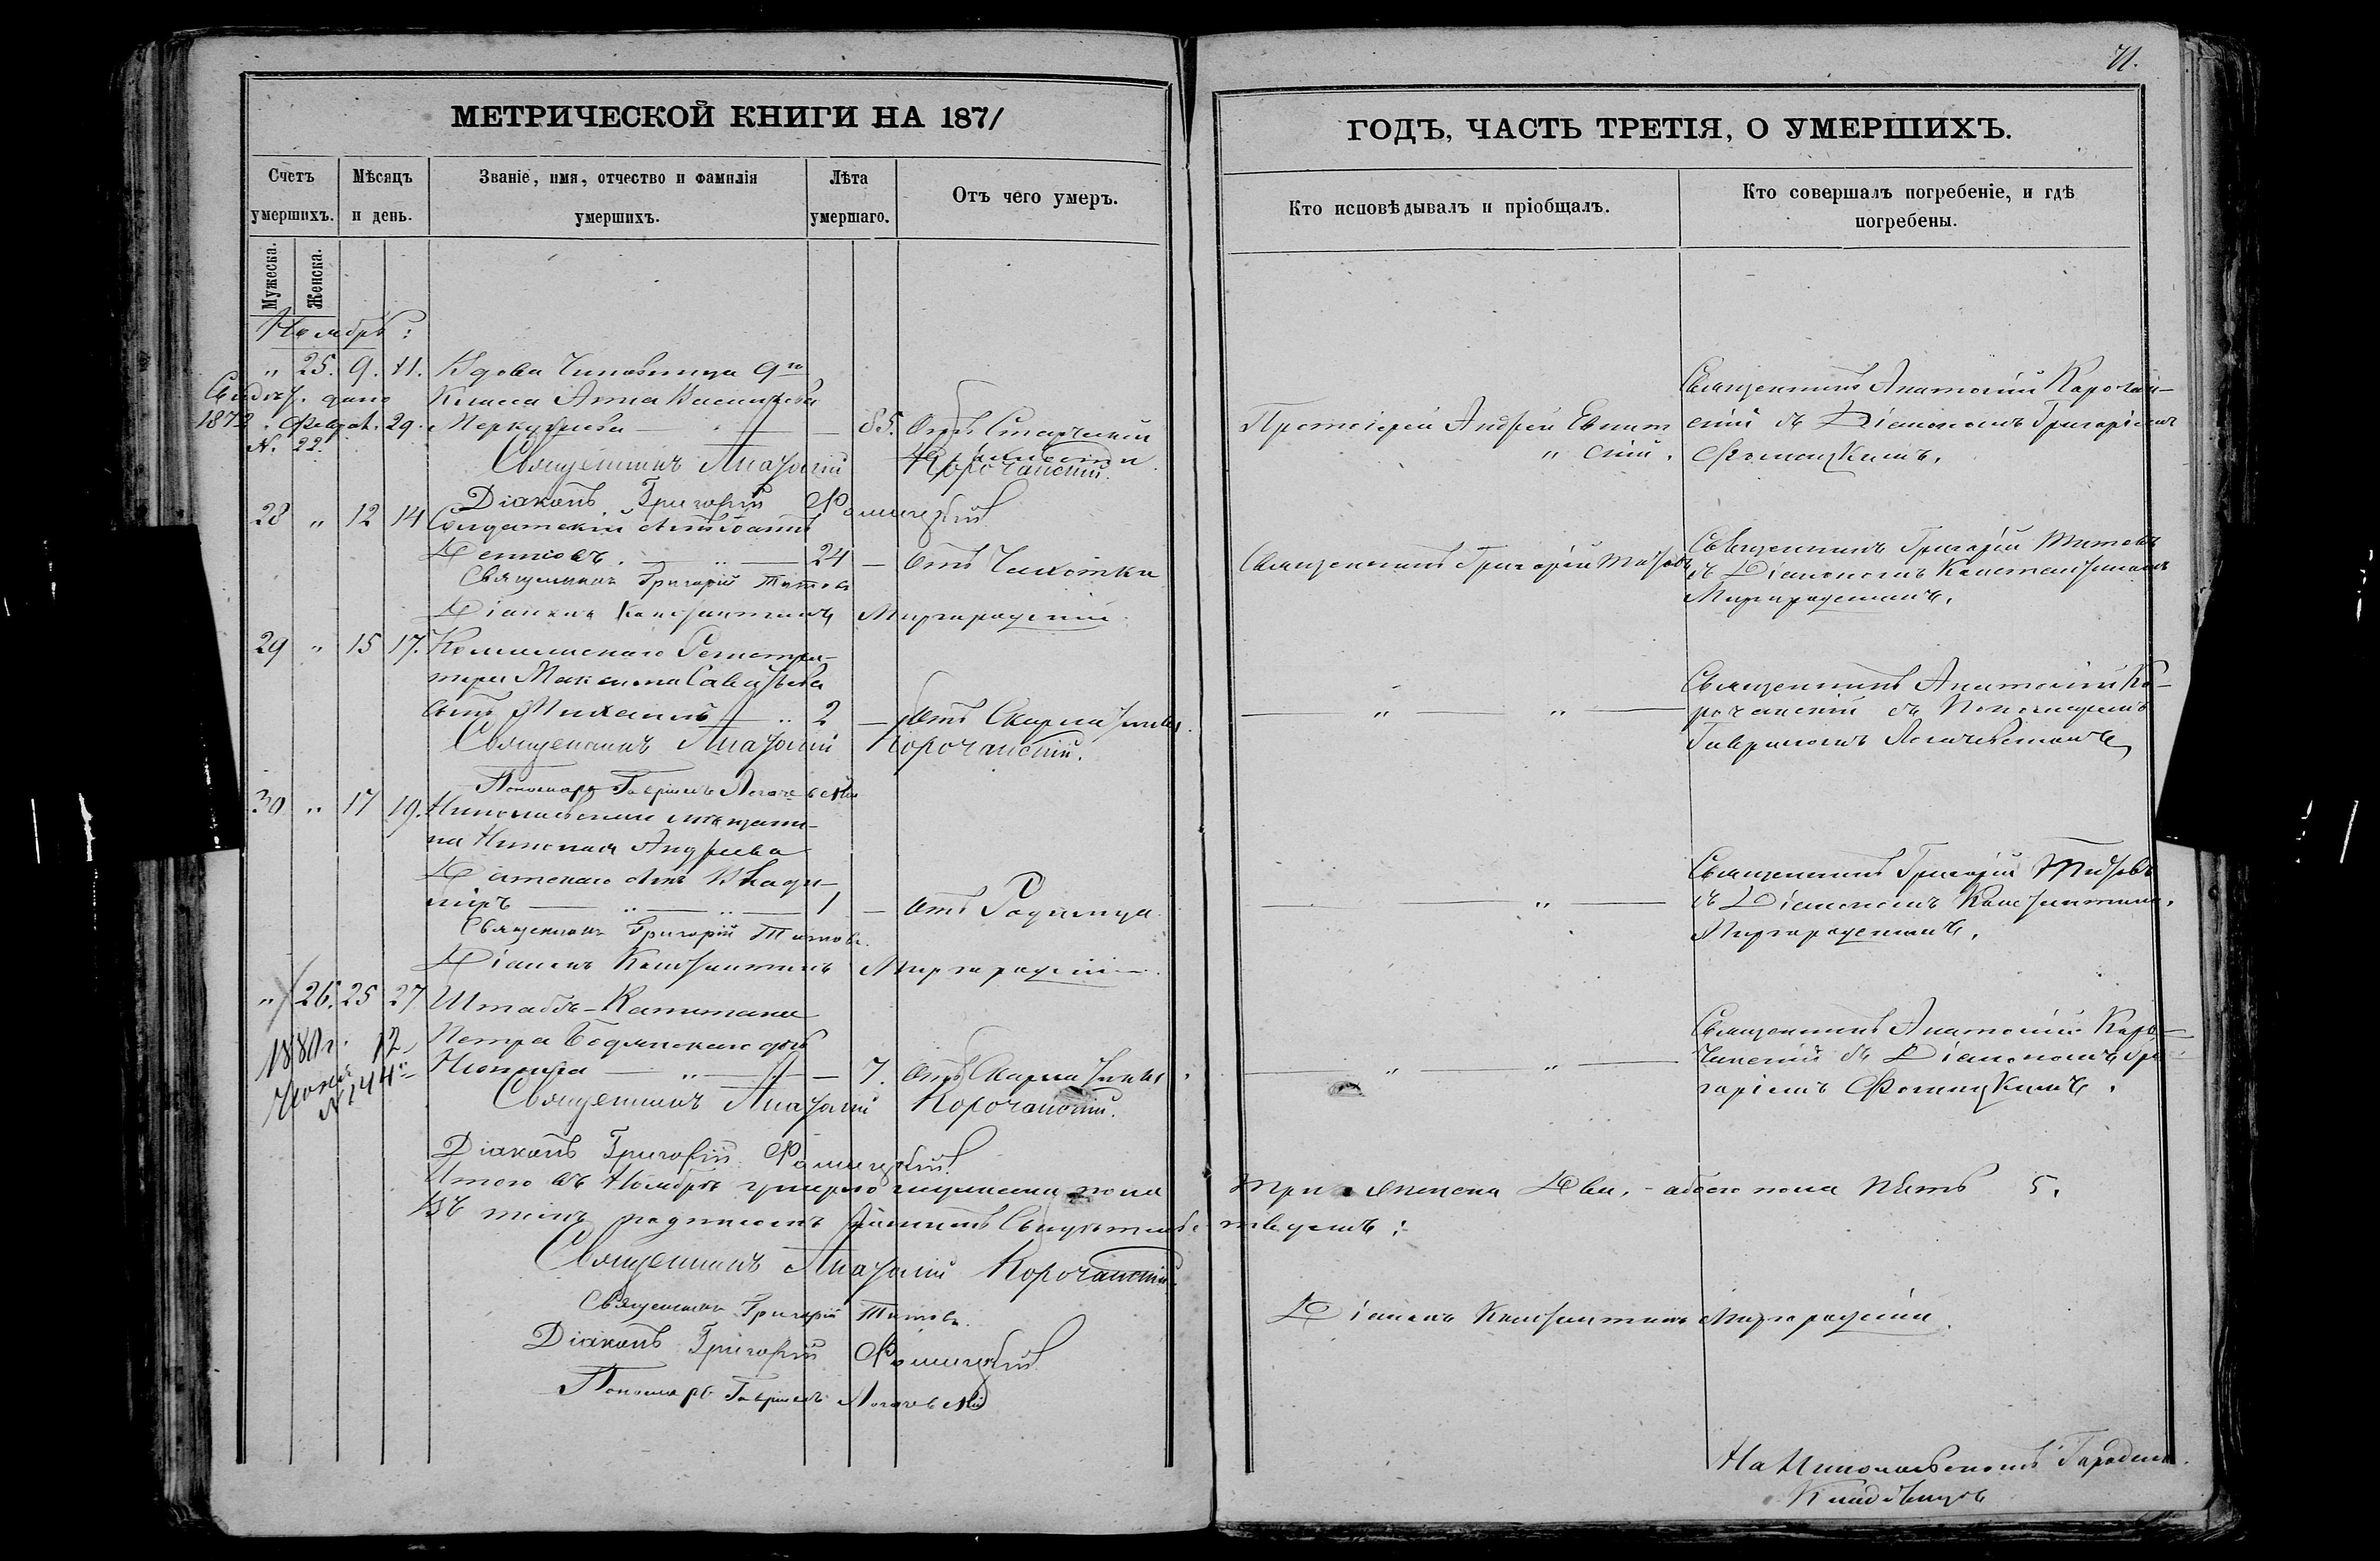 71.
МЕТРИЧЕСКОЙ КНИГИ НА 1871
ГОДЪ, ЧАСТЬ ТРЕТІЯ, О УМЕРШИХЪ.
Счетъ умершихъ.
Мѣсяцъ и день.
Званіе, имя, отчество и фамилія умершихъ.
Лѣта умершаго.
Отъ чего умеръ.
Кто исповѣдывалъ и пріобщалъ.
Кто совершалъ погребеніе, и гдѣ погребены.
Мужеска.
Женска.
Ноябрь:
" 25. 9. 11. Вдова Чиновница 9го
Класса Анна Васильева
1872. Феврал. 29.
N. 22.
Меркурьева 85. Отъ Старческой
Протоіерей Андрей
Священникъ Анатолій Корочан-
скій съ Діакономъ Григоріемъ
Фомицкимъ.
Священникъ Анатолій Корочанскій.
Діаконъ Григорій Фомицкій
28 " 12 14 Солдатскій сынъ Іоаннъ
24 — Отъ Чахотки
Священникъ Григорій Титовъ
Священникъ Григорій Титовъ
съ Діакономъ Константиномъ
Миргородскимъ.
Священникъ Григорій Титовъ
Діаконъ Константинъ Миргородскій
29 " 15 17. Коллежскаго Регистра-
тора Максима Савельева
сынъ Михаилъ " 2 — Отъ Скарлатины
Священникъ Анатолій Ко-
рочанскій съ Пономаремъ
Гавріиломъ
Священникъ Анатолій Корочанскій.
Пономарь Гавріилъ
30 " 17 19. Николаевскаго мѣщани-
на Николая Андреева
сынъ Влади-
міръ " " 1 — Отъ Родимца
Священникъ Григорій Титовъ
съ Діакономъ Константином.
Миргородскимъ.
Священникъ Григорій Титовъ.
Діаконъ Константинъ Миргородскій
" 26. 25 27 Штабсъ-Капитана
Петра Боднскаго дочь
7. Отъ Скарлатины
1880г. 12
Іюня
N 144
Священникъ Анатолій Коро-
чанскій съ Діакономъ Гри-
горіемъ Фомицкимъ.
Священникъ Анатолій Корочанскій.
Діаконъ Григорій Фомицкій.
Итого въ Ноябрѣ умерло мужеска пола три женска два, обоего пола пять 5.
Въ томъ подписомъ Свидѣтельствуемъ:
Священникъ Анатолій Корочанскій.
Священникъ Григорій Титовъ.
Діаконъ Константинъ Миргородскій.
Діаконъ Григорій Фомицкій
Пономарь Гавріилъ
На Николаевскомъ Городск.
Кладбищѣ